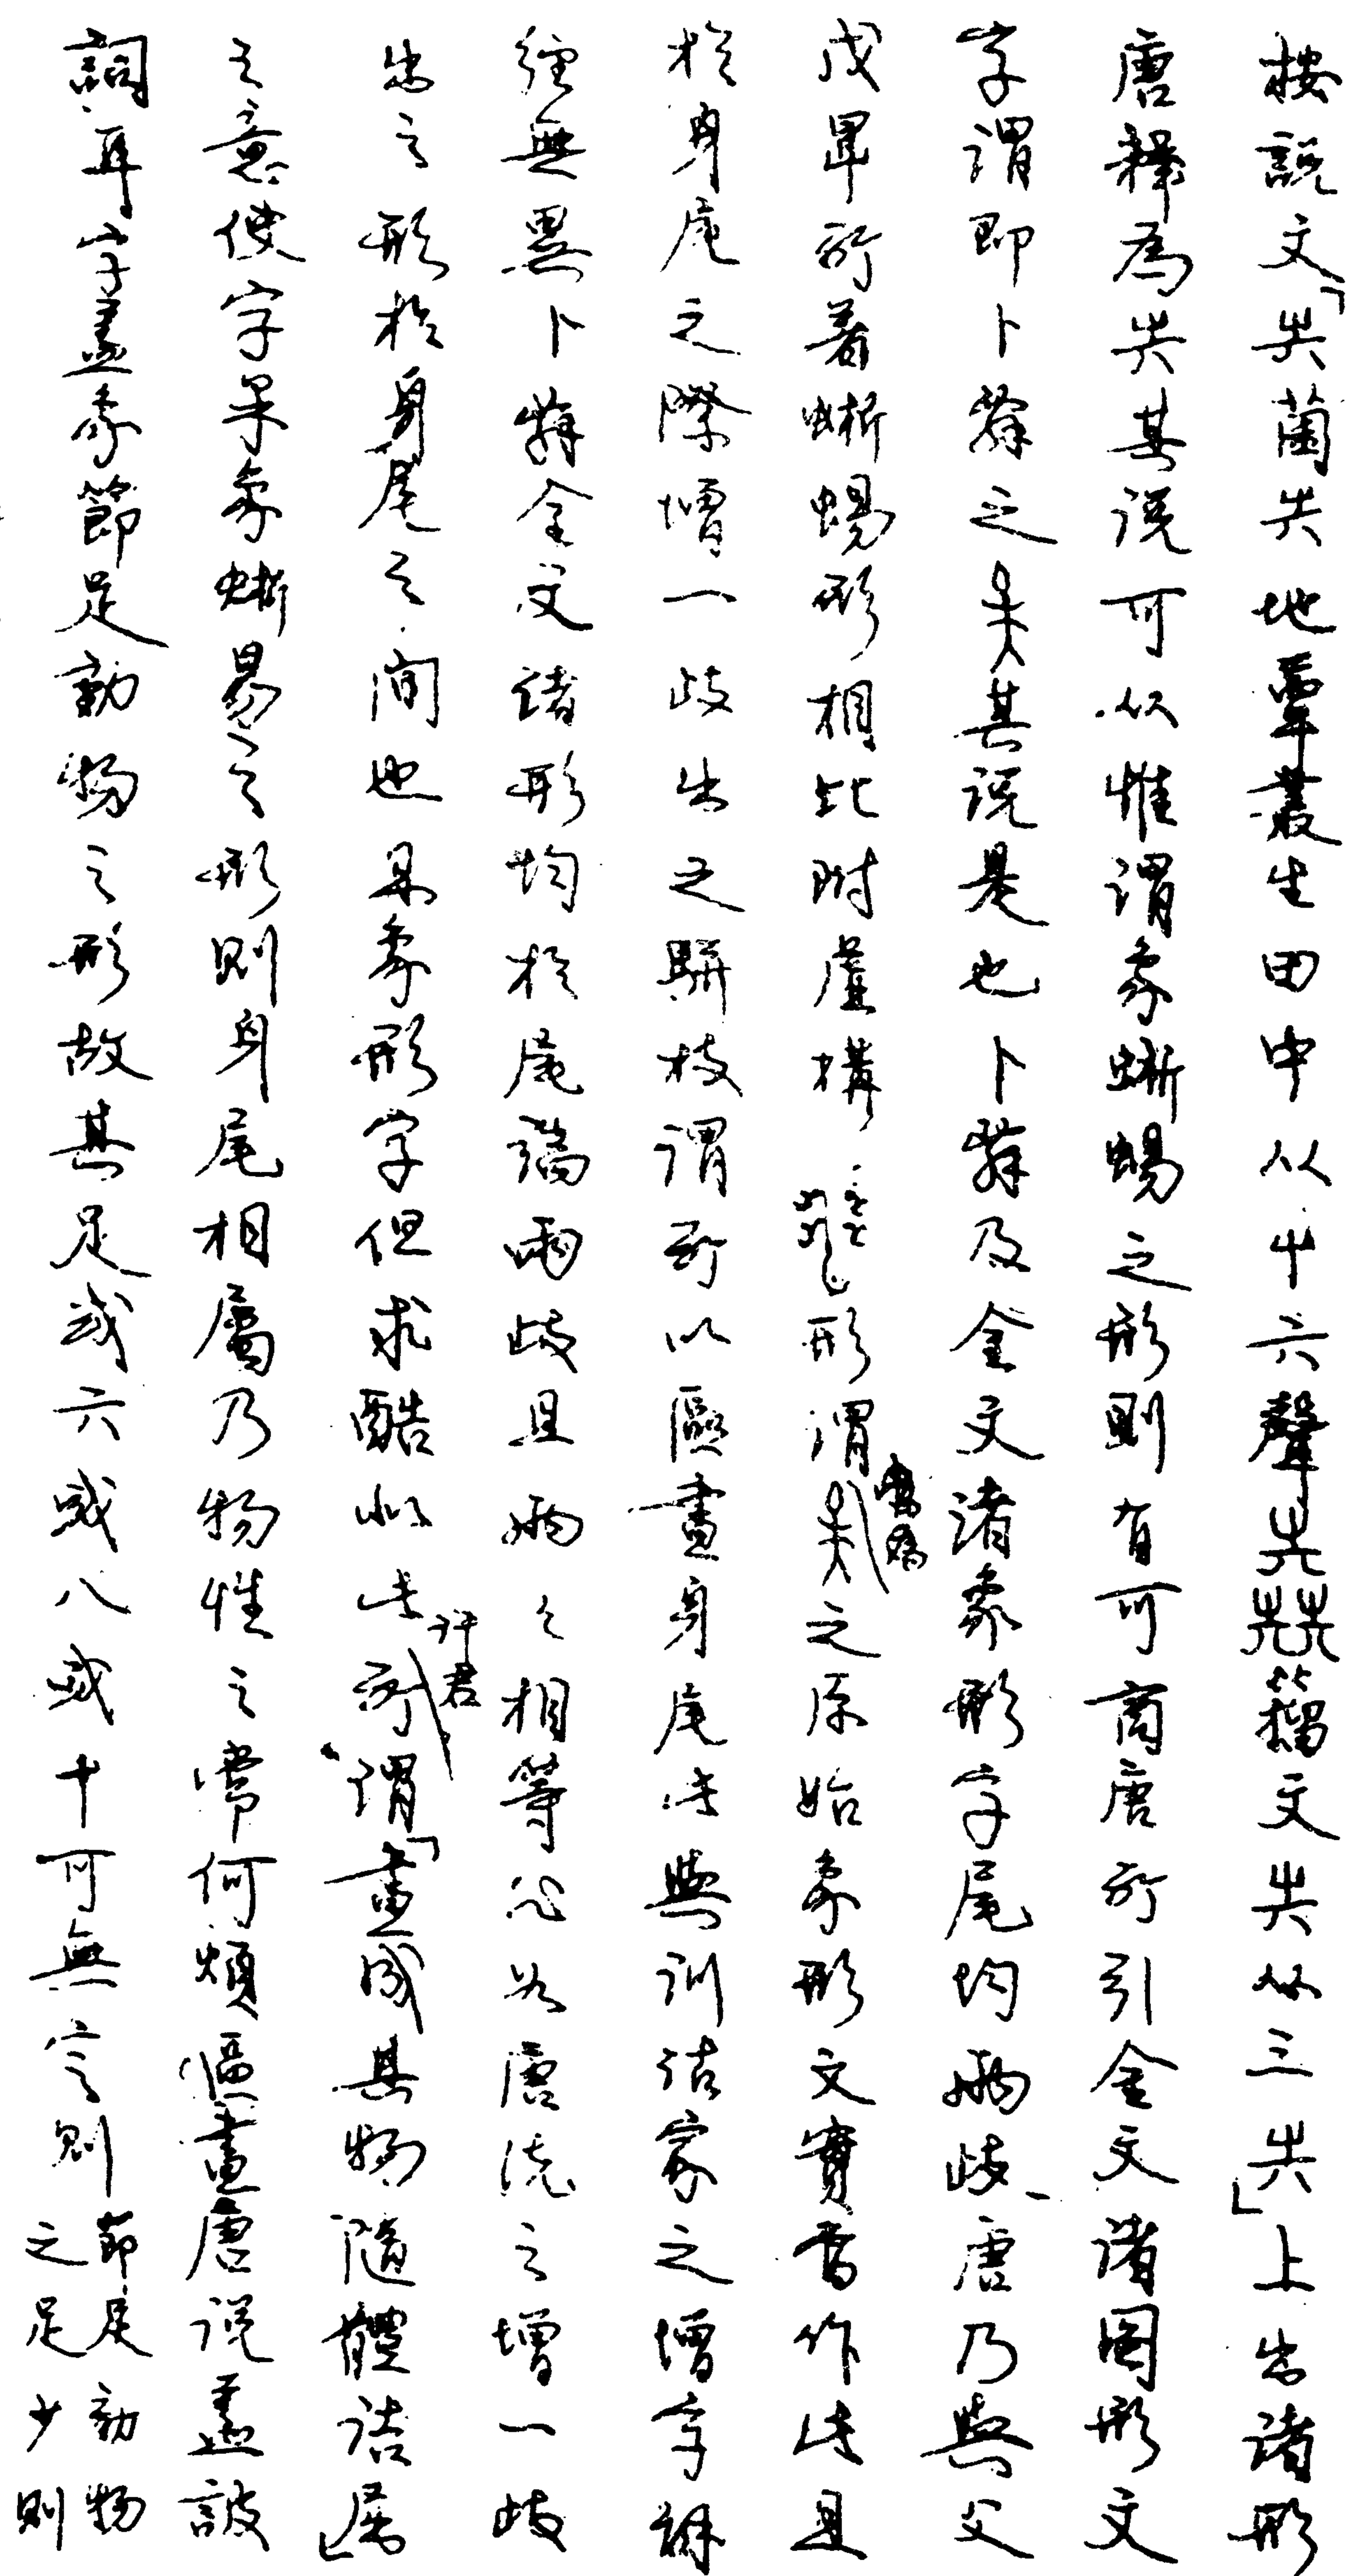 按說文「圥菌圥地蕈叢生田中从屮六聲𡴆籀文圥从三圥」上出諸形
唐釋為圥其說可从惟謂象蜥蜴之形則有可商唐所引金文諸圖形文
字謂即卜辭之其說是也卜辭及金文諸象形字尾均兩歧唐乃與父
戊𠦪所著蜥蜴形相比附虛構形謂當為之原始象形文實當作此且
於身尾之際增一歧出之駢枝謂所以區畫身尾此與訓詁家之增字解
經無異卜辭金文諸形均於尾端兩歧且兩々相等必如唐說之增一歧
出之形於身尾之間也果象形字但求酷似此許君所謂「畫成其物隨體詰屈」
之意使字果象蜥易之形則身尾相屬乃物性之常何煩區畫唐說蓋詖
詞耳字蓋象節足動物之形故其足或六或八或十可無定則節足動物之足少則